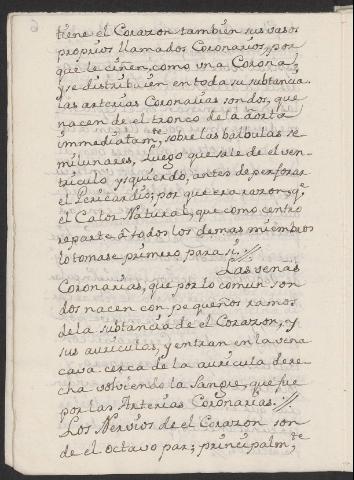 tiene el Corazon tambien sus vasos
proprios llamados Coronarios, por
que le ciñen, como una Corona,
y se distribuien en toda su substancia.
Las arterias Coronarias son dos, que
nacen de el tronco de la aorta
immediatam.te, sobre las balbulas se
milunares, luego que sale de el ven-
triculo ysquierdo, antes de perforar
el Pericardio; por que era razon, q.e
el Calor Natural, que como centro
reparte â todos los demas miembros
lo tomase primero para si.//
Las venas
Coronarias, que por lo comun son
dos nacen con pequeños ramos
de la substancia de el Corazon, y
sus auriculas, y entran en la vena
cava cerca de la auricula dere-
cha volviendo la sangre, que fue
por las Arterias Coronarias.//
Los Nervios de el Corazon son
de el octavo par; principalm.te